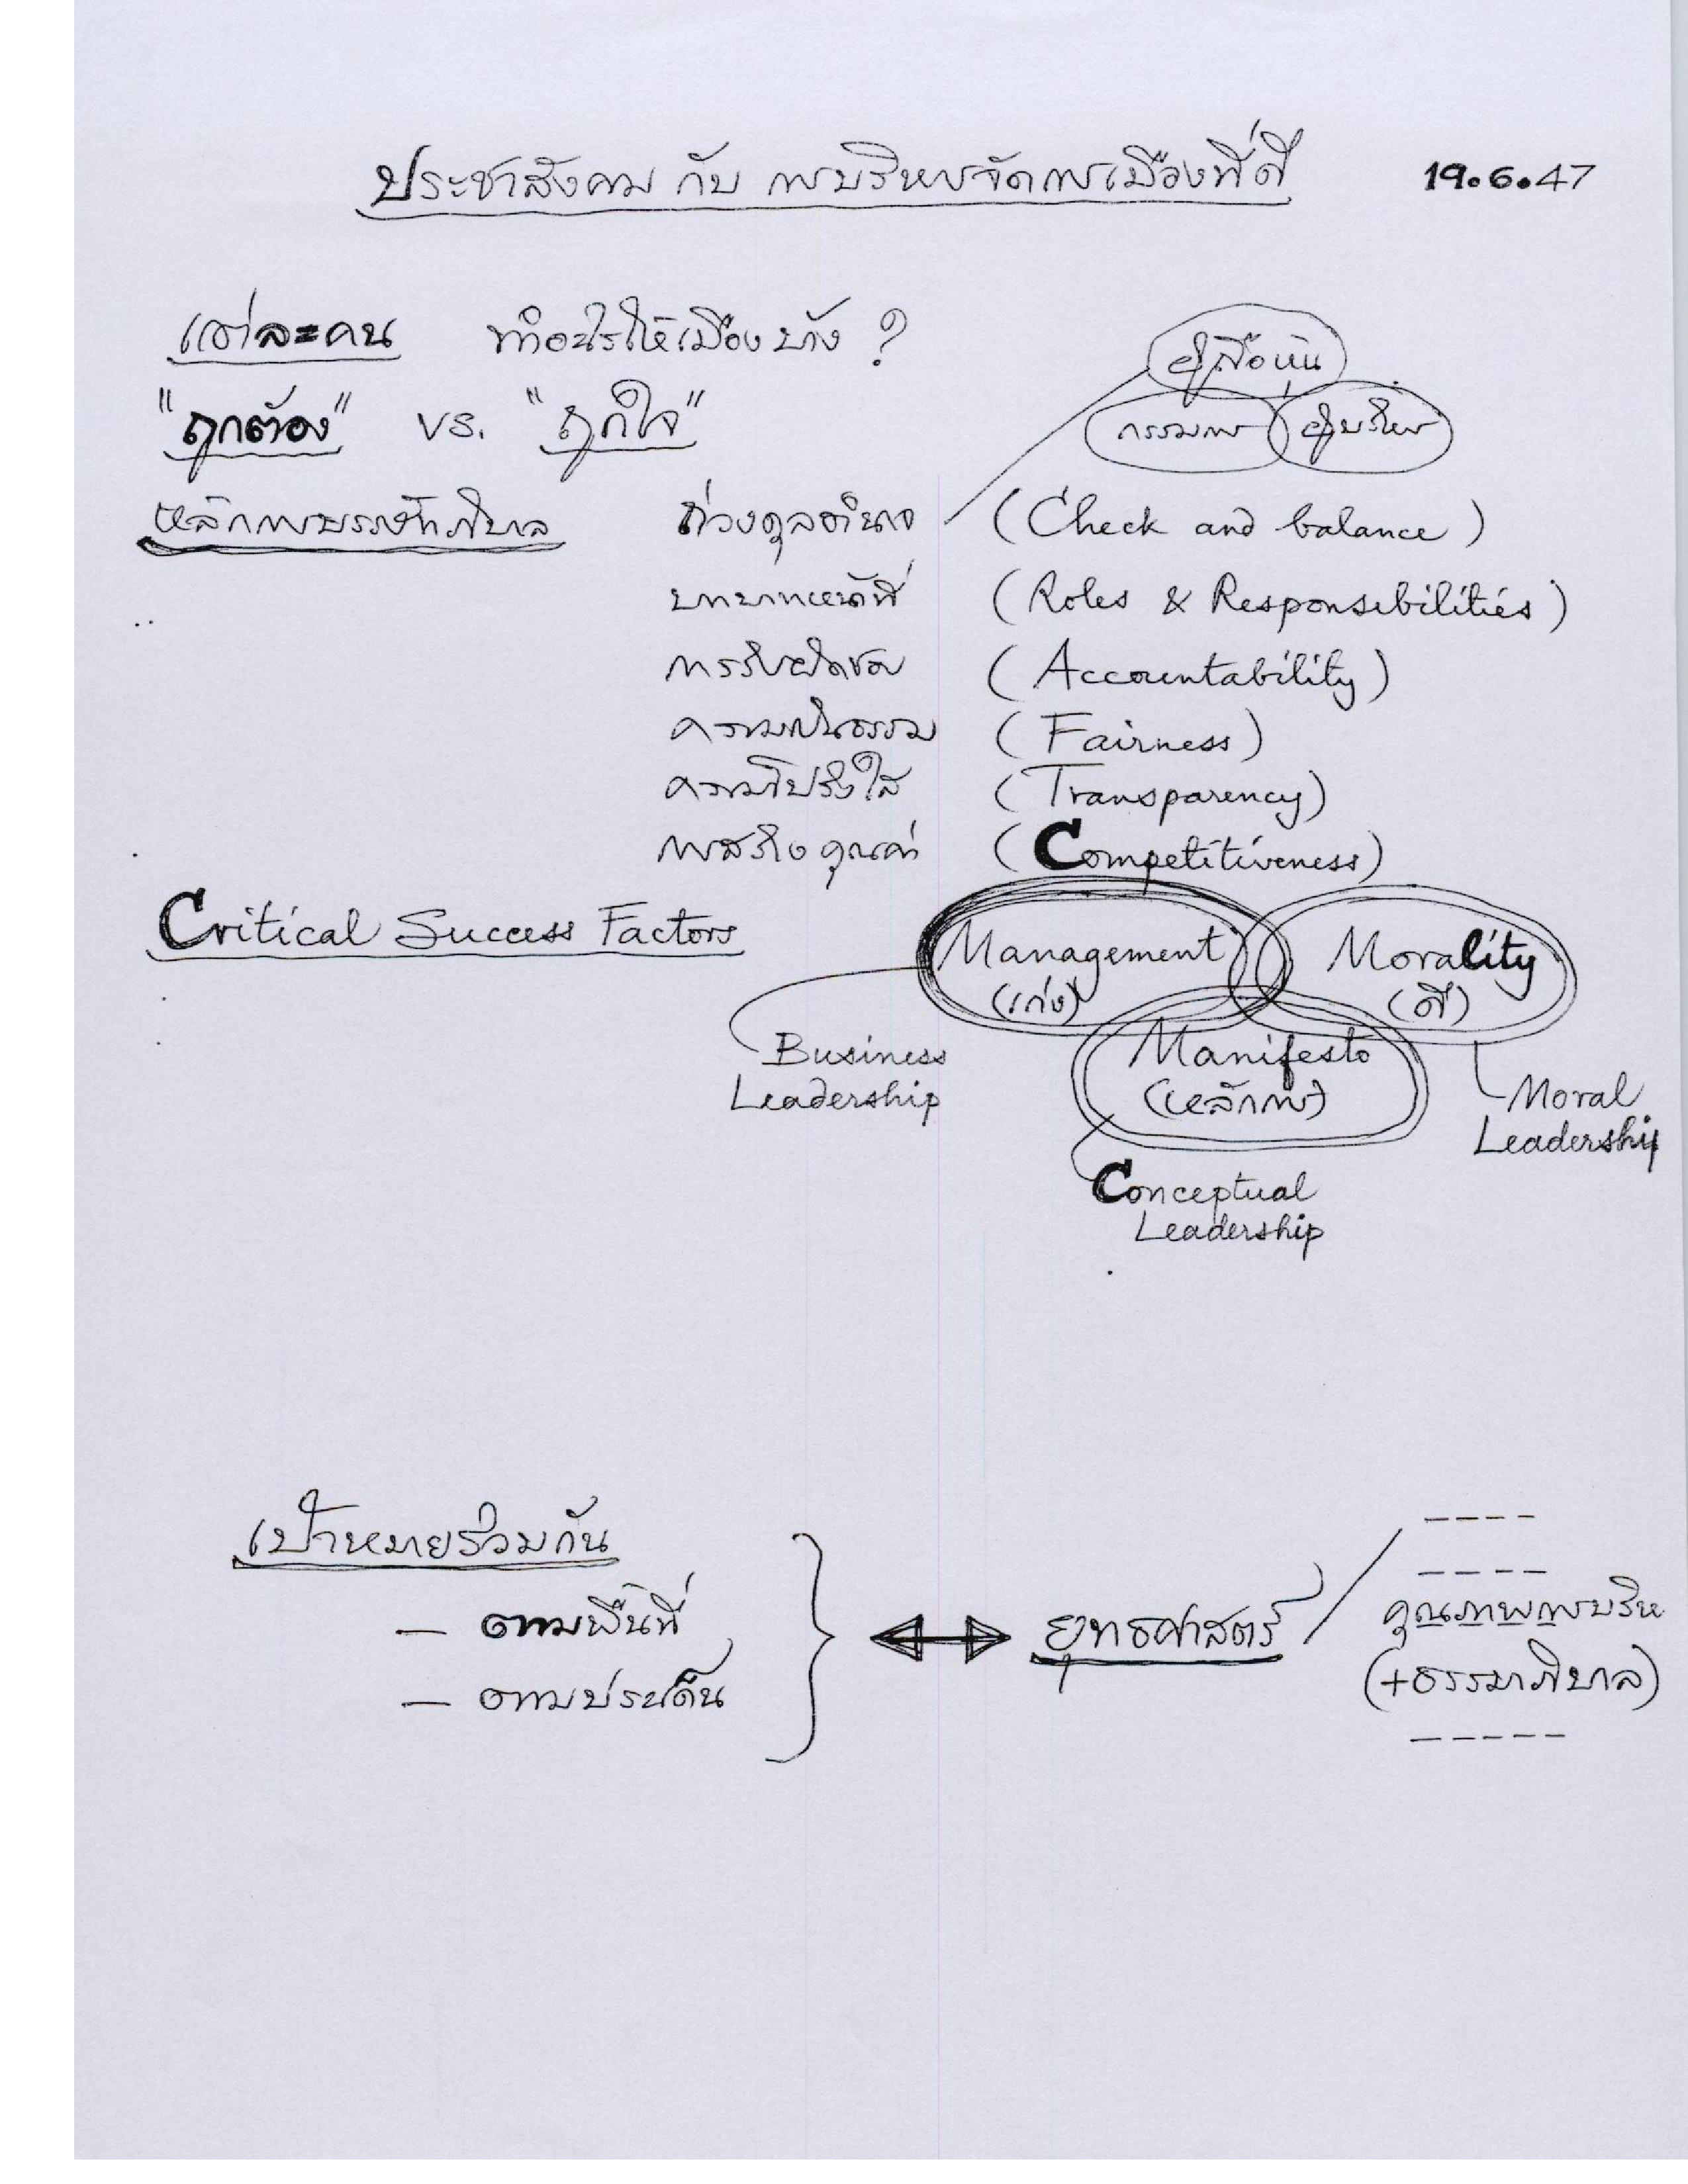 ประชาสังคม กับ การบริหารจัดการเมืองที่ดี 19.6.47
แต่ละคน ทำอะไรให้เมืองบ้าง ?
"ถูกต้อง" vs. "ถูกใจ"
ผู้ถือหุ้น
กรรมการ ผู้บริหาร
หลักการบรรษัทภิบาล ถ่วงดุลอำนาจ (Check and balance)
บทบาทหน้าที่ (Roles & Responsibilities)
การรับผิดชอบ (Accountability)
ความเป็นธรรม (Fairness)
ความโปร่งใส (Transparency)
การสร้างคุณค่า (Competitiveness)
Critical Success Factors
Management
(เก่ง)
Morality
(ดี)
Manifesto
(หลักการ)
Business
Leadership
Moral
Leadership
Conceptual
Leadership
เป้าหมายร่วมกัน
— ตามพื้นที่
— ตามประเด็น
ยุทธศาสตร์
----
-----
คุณภาพการบริห
(+ธรรมาภิบาล)
-----